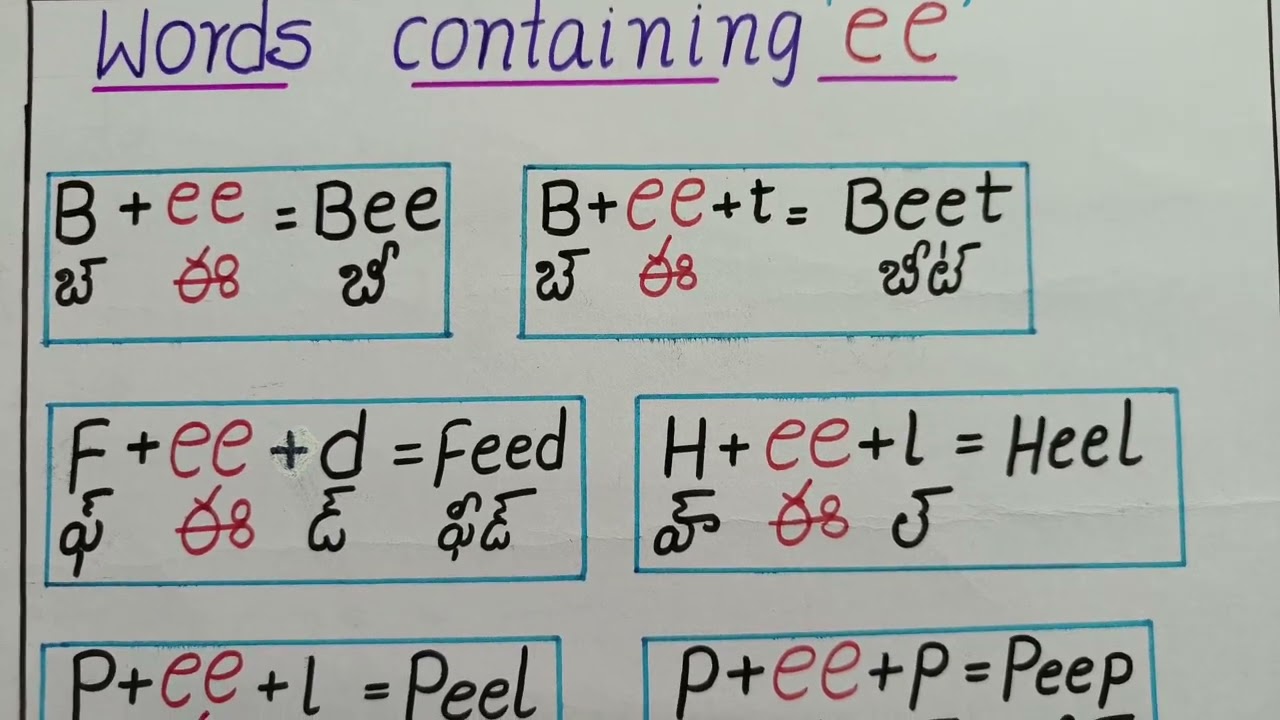 Words containing 'ee'
B + ee = Bee
ಬ್ ಈ ಬೀ
B+ee+t = Beet
ಬ್ ಈ ಬೀಟ್
F+ee+d = Feed
ಫ್ ಈ ಡ್ ಫೀಡ್
H+ee+l = Heel
ಹ್ ಈ ಲ್
P+ee+l = Peel
P+ee+P = Peep